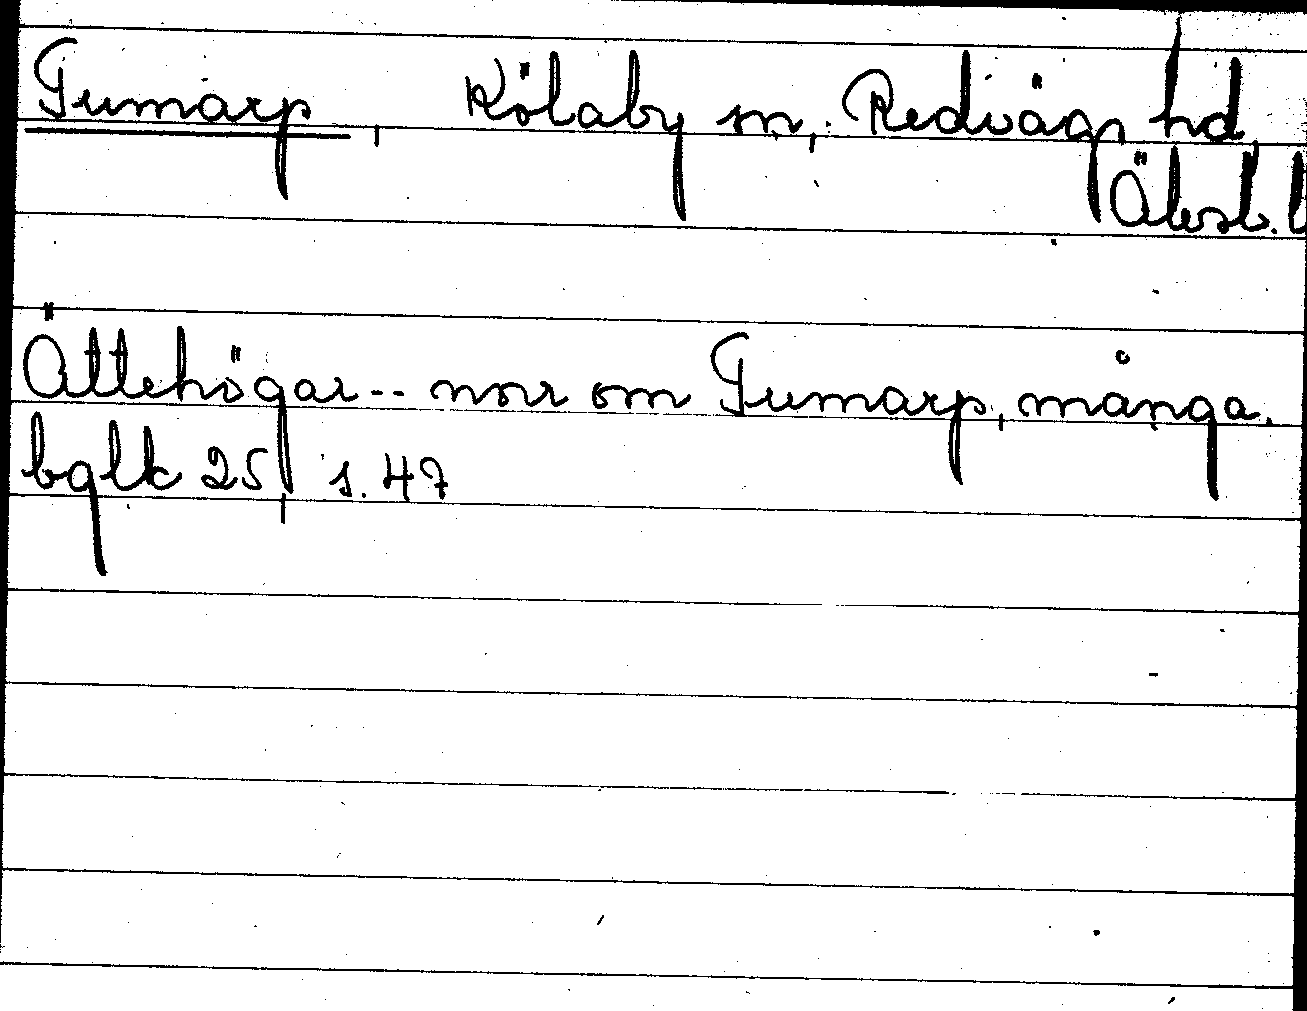 Gumarp, Kölaby sn, Redvägs hd,
Älvsb. l
Ättehögar -- norr om Gumarp, många.
bglk 25, s. 47